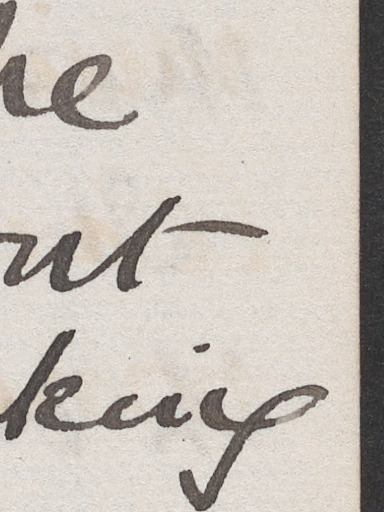 he
out
king